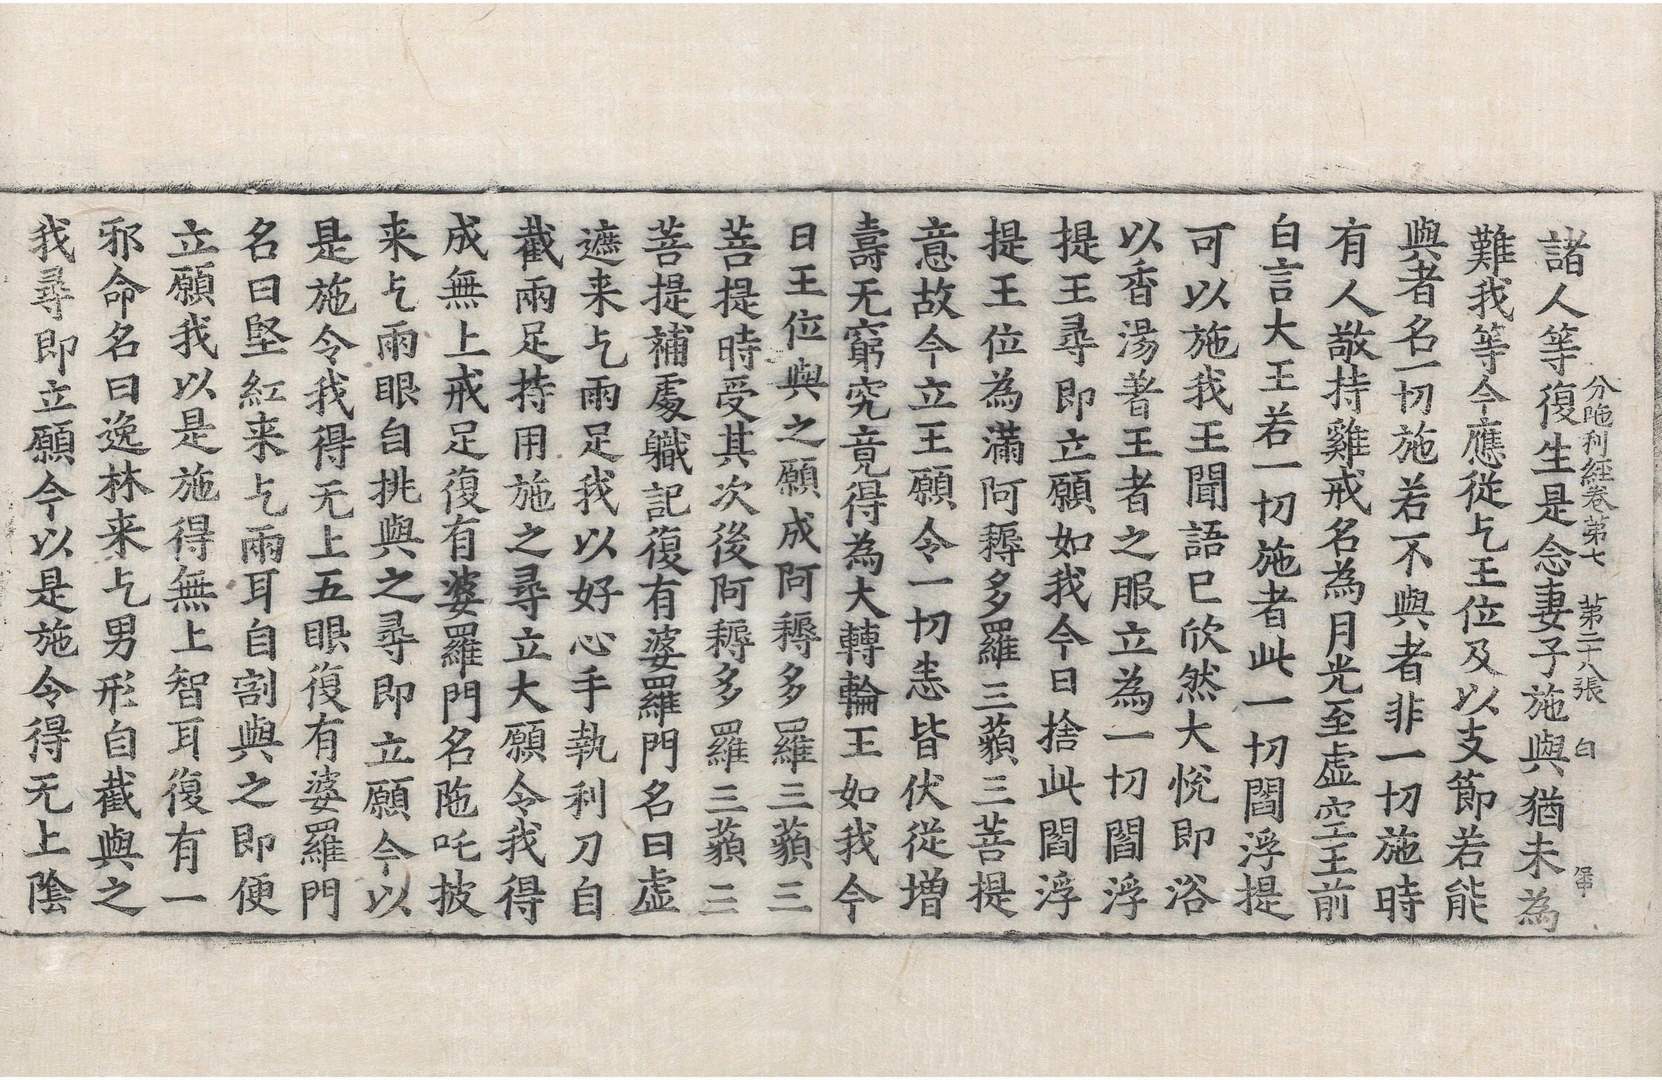 分陁利經卷第七　第二十八張　白
諸人等復生是念妻子施與猶未為
難我等今應從乞王位及以支節若能
與者名一切施若不與者非一切施時
有人敬持雞戒名為月光至虛空王前
白言大王若一切施者此一切閻浮提
可以施我王聞語已欣然大悅即浴
以香湯著王者之服立為一切閻浮
提王尋即立願如我今日捨此閻浮
提王位為滿阿耨多羅三藐三菩提
意故今立王願令一切恚皆伏從增
壽无窮究竟得為大轉輪王如我今
日王位與之願成阿耨多羅三藐三
菩提時受其次後阿耨多羅三藐三
菩提補處軄記復有婆羅門名曰虛
遮来乞兩足我以好心手執利刀自
截兩足持用施之尋立大願令我得
成無上戒足復有婆羅門名陁吒披
来乞兩眼自挑與之尋即立願今以
是施令我得无上五眼復有婆羅門
名曰堅紅来乞兩耳自割與之即便
立願我以是施得無上智耳復有一
邪命名曰逸林来乞男形自截與之
我尋即立願今以是施令得无上陰